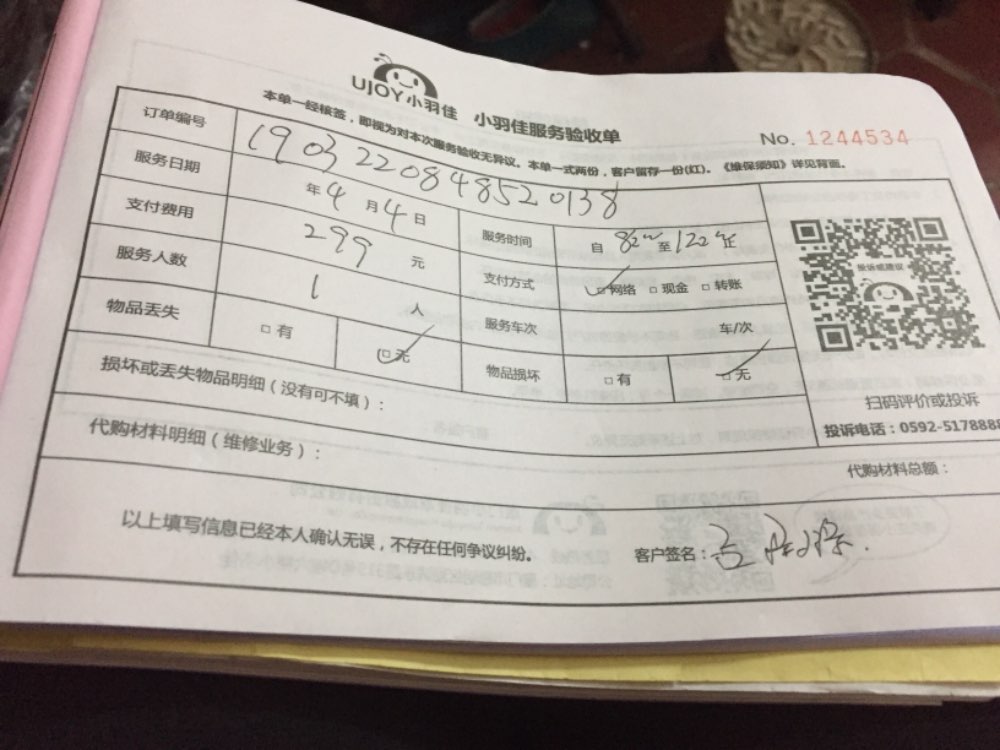 UJOY小羽佳 小羽佳服务验收单
No. 1244534
本单一经核签，即视为对本次服务验收无异议。本单一式两份，客户留存一份(红)。《维保须知》详见背面。
订单编号 1903220848520138
服务日期 年4月4日 服务时间 自 8:00 至 12:00 止
支付费用 299 元 支付方式 网络 现金 转账
服务人数 1 人 服务车次 车/次
物品丢失 有 无 物品损坏 有 无
投诉或建议
扫码评价或投诉
投诉电话：0592-5178888
损坏或丢失物品明细（没有可不填）：
代购材料明细（维修业务）：
代购材料总额：
以上填写信息已经本人确认无误，不存在任何争议纠纷。 客户签名：